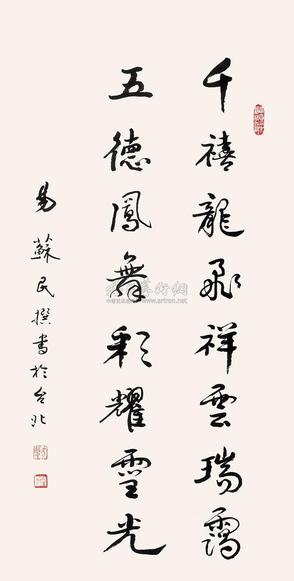 千禧龍飛祥雲瑞靄
五德鳳舞彩耀靈光
易蘇民撰書於台北